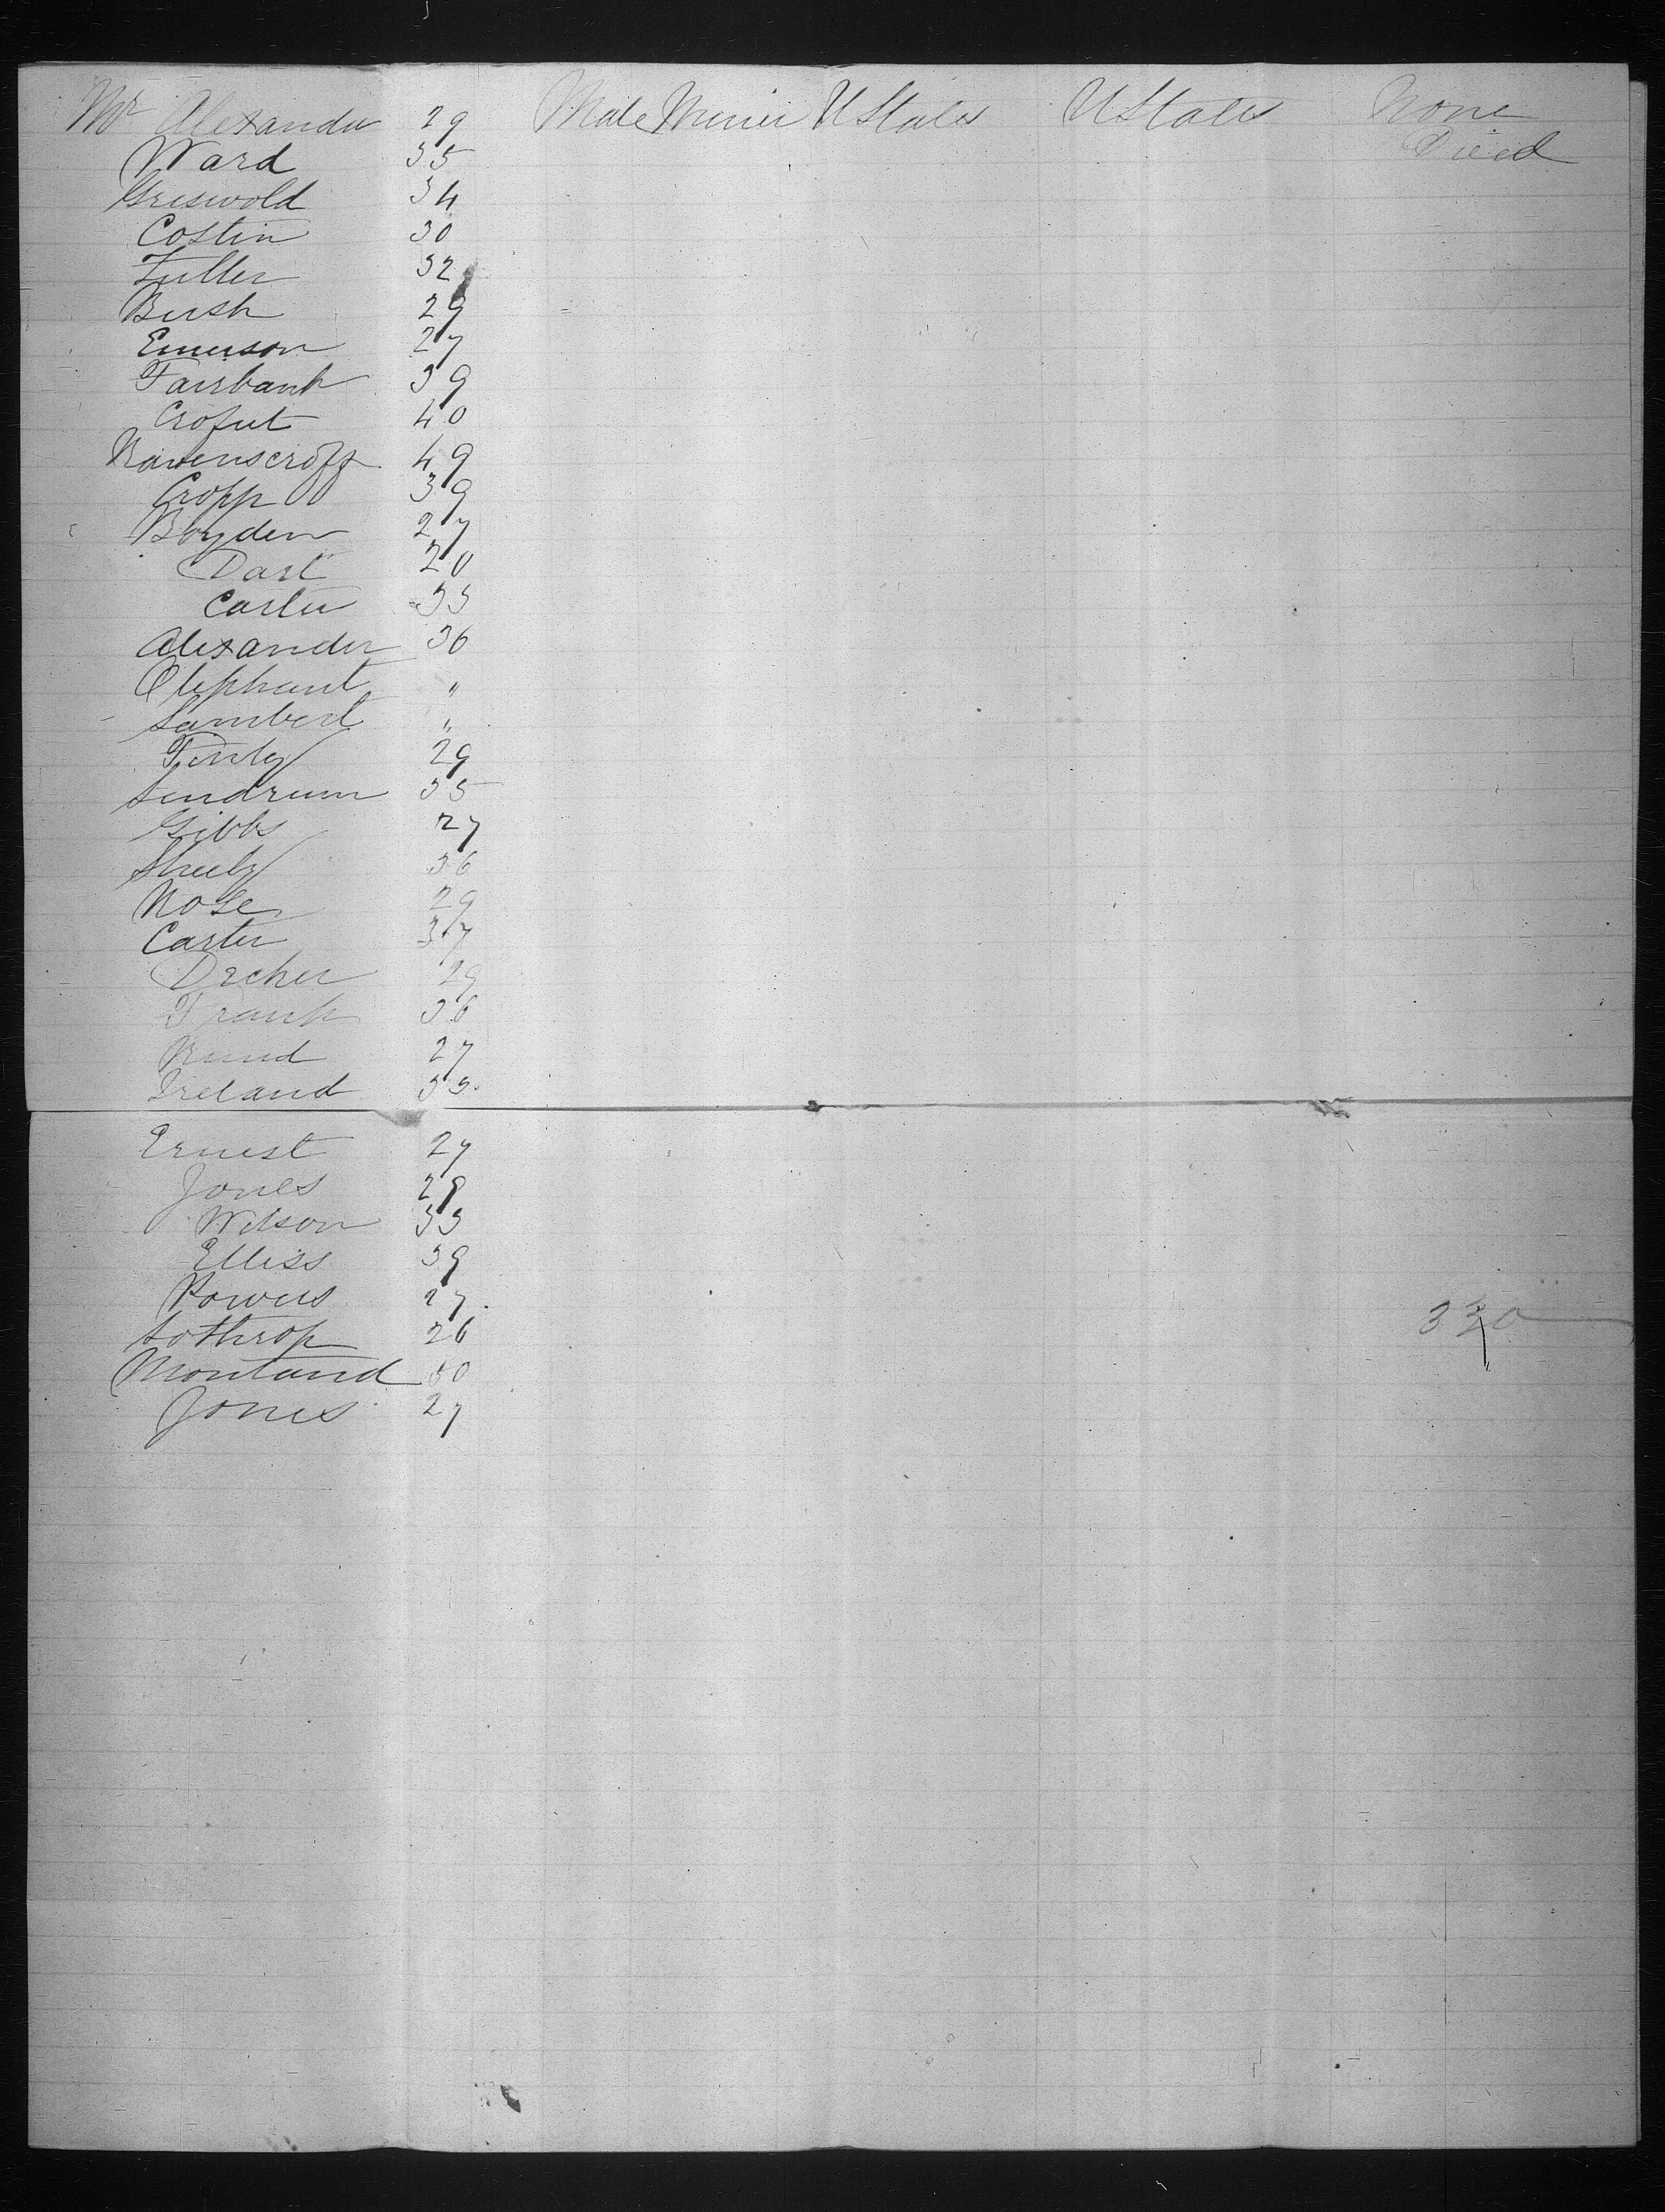 Mr Alexander 29 Male Miner UStates UStates None
Ward 35 Died
Griswold 34
Costin 30
Fuller 32
Bush 29
Emerson 27
Fairbank 39
Crofut 40
Ravenscroft 49
Cropp 39
Boyden 27
Dart 20
Carter 33
Alexander 36
Olephant "
Lambert "
Finly 29
Lendrum 35
Gibbs 27
Sheely 36
Nose 29
Carter 37
Dreher 29
Frank 36
Rund 27
Ireland 33
Ernest 27
Jones 29
Wilson 33
Elliss 39
Powers 27
Lothrop 26
Montand 30
330
Jones 27